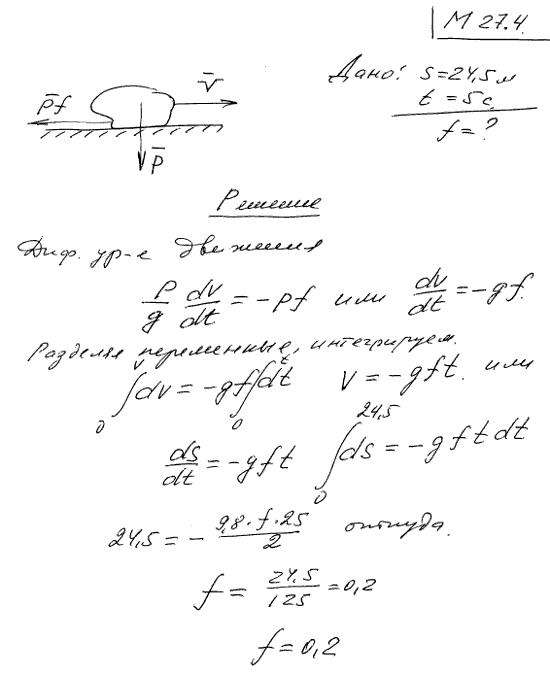 М 27.4.
Дано: s=24,5 м
t = 5 с.
f = ?
P̄f V̄
P̄
Решение
Диф. ур-е движения
P/g dv/dt = -Pf или dv/dt = -gf.
Разделяя переменные, интегрируем.
∫₀ᵛ dv = -gf ∫₀ᵗ dt V = -gft. или
ds/dt = -gft ∫₀²⁴·⁵ ds = -gftdt
24,5 = - 9,8·f·25/2 откуда.
f = 24.5/125 = 0,2
f = 0,2